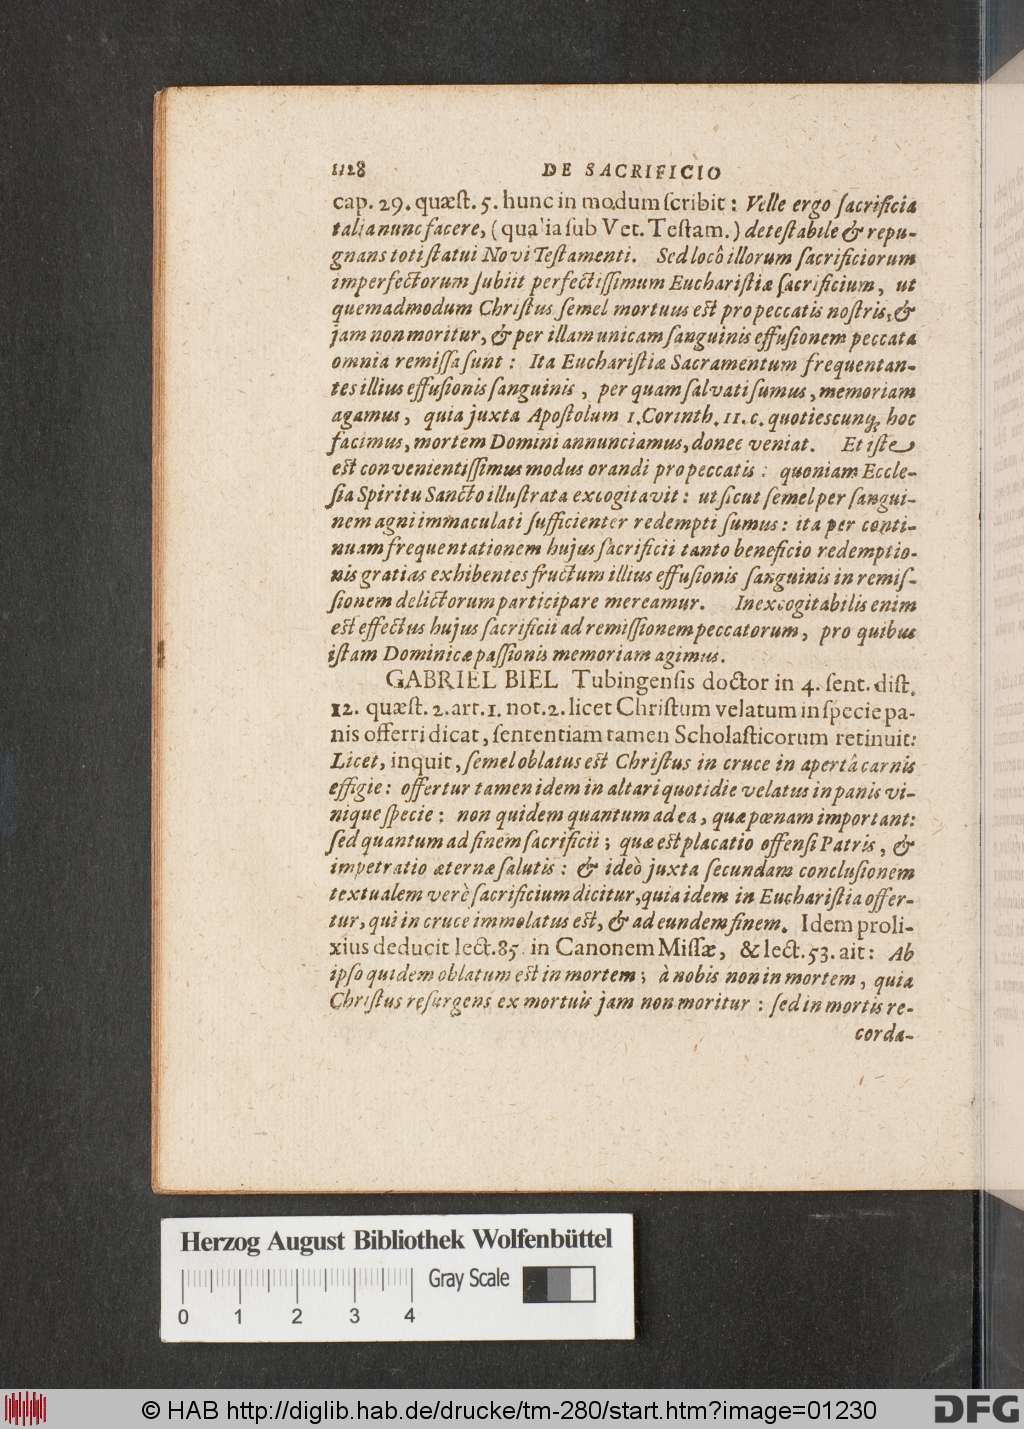 1128 DE SACRIFICIO
cap. 29. quæst. 5. hunc in modum scribit: Velle ergo sacrificia
talia nunc facere, (qualia sub Vet. Testam.) detestabile & repu-
gnans toti statui Novi Testamenti. Sed locô illorum sacrificiorum
imperfectorum subiit perfectissimum Eucharistiæ sacrificium, ut
quemadmodum Christus semel mortuus est pro peccatis nostris, &
jam non moritur, & per illam unicam sanguinis effusionem peccata
omnia remissa sunt: Ita Eucharistiæ Sacramentum frequentan-
tes illius effusionis sanguinis, per quam salvati sumus, memoriam
agamus, quia juxta Apostolum 1. Corinth. 11. c. quotiescunq; hoc
facimus, mortem Domini annunciamus, donec veniat. Et iste
est convenientissimus modus orandi pro peccatis: quoniam Eccle-
sia Spiritu Sancto illustrata excogitavit: ut sicut semel per sangui-
nem agni immaculati sufficienter redempti sumus: ita per conti-
nuam frequentationem hujus sacrificii tanto beneficio redemptio-
nis gratias exhibentes fructum illius effusionis sanguinis in remis-
sionem delictorum participare mereamur. Inexcogitabilis enim
est effectus hujus sacrificii ad remissionem peccatorum, pro quibus
istam Dominicæ passionis memoriam agimus.
GABRIEL BIEL Tubingensis doctor in 4. sent. dist.
12. quæst. 2. art. 1. not. 2. licet Christum velatum in specie pa-
nis offerri dicat, sententiam tamen Scholasticorum retinuit:
Licet, inquit, semel oblatus est Christus in cruce in apertâ carnis
effigie: offertur tamen idem in altari quotidie velatus in panis vi-
nique specie: non quidem quantum ad ea, quæ pœnam important:
sed quantum ad finem sacrificii; quæ est placatio offensi Patris, &
impetratio æternæ salutis: & ideò juxta secundam conclusionem
textualem verè sacrificium dicitur, quia idem in Eucharistia offer-
tur, qui in cruce immolatus est, & ad eundem finem. Idem proli-
xius deducit lect. 85. in Canonem Missæ, & lect. 53. ait: Ab
ipso quidem oblatum est in mortem; à nobis non in mortem, quia
Christus resurgens ex mortuis jam non moritur: sed in mortis re-
corda-
Herzog August Bibliothek Wolfenbüttel
Gray Scale
0 1 2 3 4
© HAB http://diglib.hab.de/drucke/tm-280/start.htm?image=01230
DFG